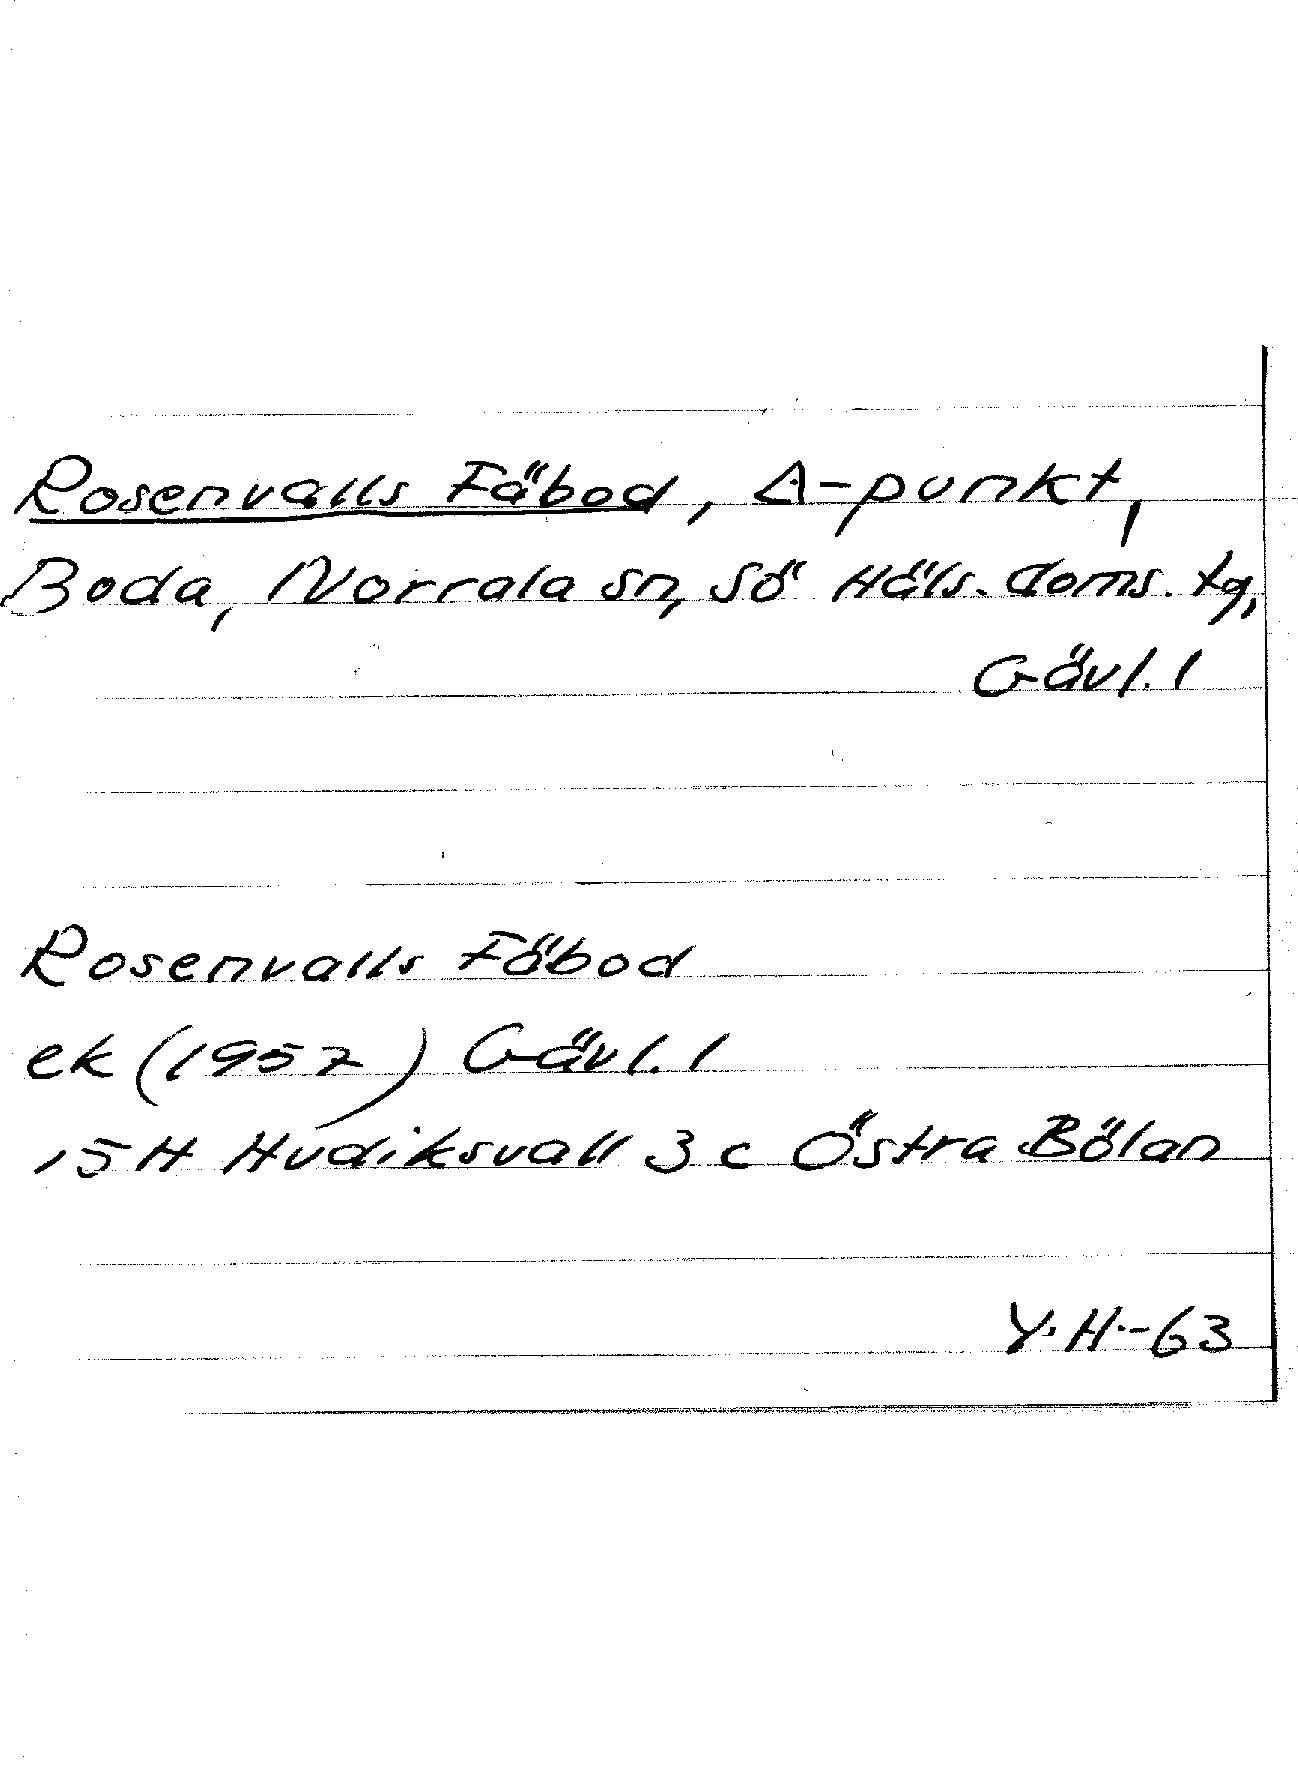 Rosenvalls Fäbod, Δ-punkt,
Boda, Norrala sn, Sö Häls. doms. tg,
Gävl. l
Rosenvalls Fäbod
ek (1957) Gävl. l
15 H Hudiksvall 3 c Östra Bölan
Y.H.-63